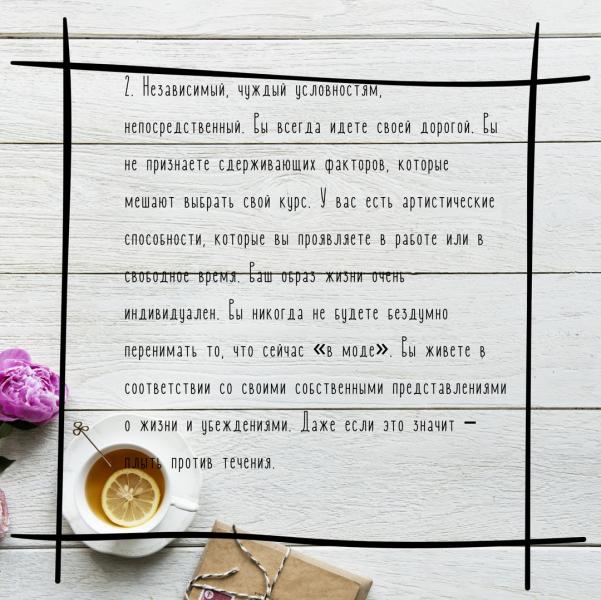 2. Независимый, чуждый условностям,
непосредственный. Вы всегда идете своей дорогой. Вы
не признаете сдерживающих факторов, которые
мешают выбрать свой курс. У вас есть артистические
способности, которые вы проявляете в работе или в
свободное время. Ваш образ жизни очень
индивидуален. Вы никогда не будете бездумно
перенимать то, что сейчас «в моде». Вы живете в
соответствии со своими собственными представлениями
о жизни и убеждениями. Даже если это значит –
плыть против течения.